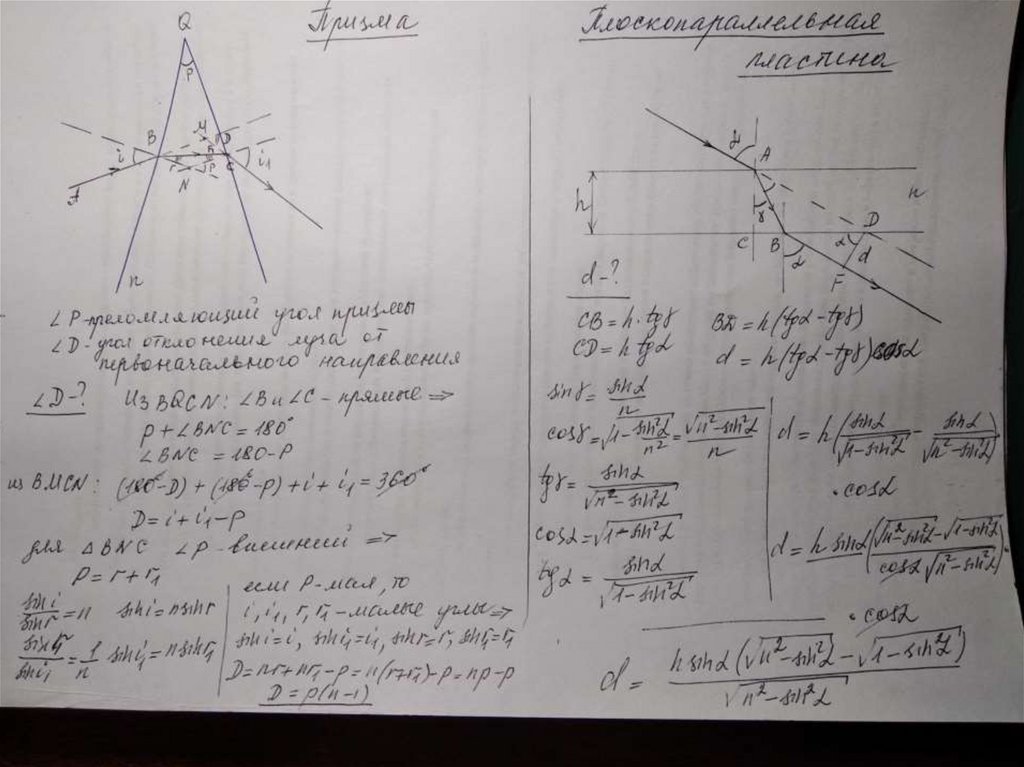 Призма
Q
P
B
M
D
i
r
r₁
P
C
i₁
N
A
n
∠P-преломляющий угол призмы
∠D-угол отклонения луча от
первоначального направления
∠D-? Из BQCN: ∠B и ∠C - прямые ⇒
P + ∠BNC = 180°
∠BNC = 180-P
из BMCN: (180°-D) + (180°-P) + i + i₁ = 360°
D = i + i₁ - P
для △BNC ∠P - внешний ⇒
P = r + r₁
sin i / sin r = n sin i = n sin r
sin r₁ / sin i₁ = 1/n sin i₁ = n sin r₁
если P-мал, то
i, i₁, r, r₁ - малые углы ⇒
sin i = i, sin i₁ = i₁, sin r = r, sin r₁ = r₁
D = nr + nr₁ - P = n(r+r₁) - P = nP - P
D = P(n-1)
Плоскопараллельная
пластина
α
A
n
h
γ
C
B
α
D
α
d
F
d-?
CB = h · tgγ BD = h(tgα - tgγ)
CD = h tgα d = h(tgα - tgγ) cosα
sinγ = sinα / n
cosγ = √(1 - sin²α / n²) = √(n² - sin²α) / n
tgγ = sinα / √(n² - sin²α)
cosα = √(1 - sin²α)
tgα = sinα / √(1 - sin²α)
d = h(sinα / √(1 - sin²α) - sinα / √(n² - sin²α)) ·
· cosα
d = h sinα(√(n² - sin²α) - √(1 - sin²α)) / (cosα √(n² - sin²α)) ·
· cosα
d = h sinα(√(n² - sin²α) - √(1 - sin²α)) / √(n² - sin²α)